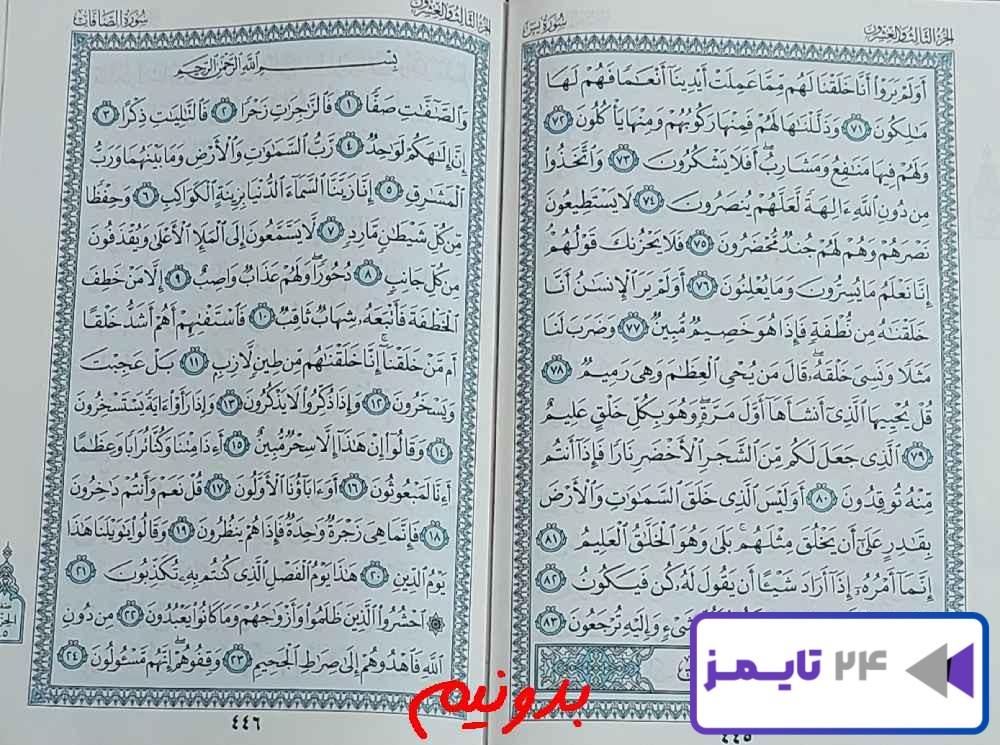 الجزء الثالث والعشرون
سورة يس
أَوَلَمْ يَرَوْا۟ أَنَّا خَلَقْنَا لَهُم مِّمَّا عَمِلَتْ أَيْدِينَآ أَنْعَـٰمًا فَهُمْ لَهَا
مَـٰلِكُونَ ٧١ وَذَلَّلْنَـٰهَا لَهُمْ فَمِنْهَا رَكُوبُهُمْ وَمِنْهَا يَأْكُلُونَ ٧٢
وَلَهُمْ فِيهَا مَنَـٰفِعُ وَمَشَارِبُ ۖ أَفَلَا يَشْكُرُونَ ٧٣ وَٱتَّخَذُوا۟
مِن دُونِ ٱللَّهِ ءَالِهَةً لَّعَلَّهُمْ يُنصَرُونَ ٧٤ لَا يَسْتَطِيعُونَ
نَصْرَهُمْ وَهُمْ لَهُمْ جُندٌ مُّحْضَرُونَ ٧٥ فَلَا يَحْزُنكَ قَوْلُهُمْ ۘ
إِنَّا نَعْلَمُ مَا يُسِرُّونَ وَمَا يُعْلِنُونَ ٧٦ أَوَلَمْ يَرَ ٱلْإِنسَـٰنُ أَنَّا
خَلَقْنَـٰهُ مِن نُّطْفَةٍ فَإِذَا هُوَ خَصِيمٌ مُّبِينٌ ٧٧ وَضَرَبَ لَنَا
مَثَلًا وَنَسِىَ خَلْقَهُۥ ۖ قَالَ مَن يُحْىِ ٱلْعِظَـٰمَ وَهِىَ رَمِيمٌ ٧٨
قُلْ يُحْيِيهَا ٱلَّذِىٓ أَنشَأَهَآ أَوَّلَ مَرَّةٍ ۖ وَهُوَ بِكُلِّ خَلْقٍ عَلِيمٌ
٧٩ ٱلَّذِى جَعَلَ لَكُم مِّنَ ٱلشَّجَرِ ٱلْأَخْضَرِ نَارًا فَإِذَآ أَنتُم
مِّنْهُ تُوقِدُونَ ٨٠ أَوَلَيْسَ ٱلَّذِى خَلَقَ ٱلسَّمَـٰوَٰتِ وَٱلْأَرْضَ
بِقَـٰدِرٍ عَلَىٰٓ أَن يَخْلُقَ مِثْلَهُم ۚ بَلَىٰ وَهُوَ ٱلْخَلَّـٰقُ ٱلْعَلِيمُ ٨١
إِنَّمَآ أَمْرُهُۥٓ إِذَآ أَرَادَ شَيْـًٔا أَن يَقُولَ لَهُۥ كُن فَيَكُونُ ٨٢
شَىْءٍ وَإِلَيْهِ تُرْجَعُونَ ٨٣
٤٤٥
الجزء الثالث والعشرون
سورة الصافات
بِسْمِ ٱللَّهِ ٱلرَّحْمَـٰنِ ٱلرَّحِيمِ
وَٱلصَّـٰٓفَّـٰتِ صَفًّا ١ فَٱلزَّٰجِرَٰتِ زَجْرًا ٢ فَٱلتَّـٰلِيَـٰتِ ذِكْرًا ٣
إِنَّ إِلَـٰهَكُمْ لَوَٰحِدٌ ٤ رَّبُّ ٱلسَّمَـٰوَٰتِ وَٱلْأَرْضِ وَمَا بَيْنَهُمَا وَرَبُّ
ٱلْمَشَـٰرِقِ ٥ إِنَّا زَيَّنَّا ٱلسَّمَآءَ ٱلدُّنْيَا بِزِينَةٍ ٱلْكَوَاكِبِ ٦ وَحِفْظًا
مِّن كُلِّ شَيْطَـٰنٍ مَّارِدٍ ٧ لَّا يَسَّمَّعُونَ إِلَى ٱلْمَلَإِ ٱلْأَعْلَىٰ وَيُقْذَفُونَ
مِن كُلِّ جَانِبٍ ٨ دُحُورًا ۖ وَلَهُمْ عَذَابٌ وَاصِبٌ ٩ إِلَّا مَنْ خَطِفَ
ٱلْخَطْفَةَ فَأَتْبَعَهُۥ شِهَابٌ ثَاقِبٌ ١٠ فَٱسْتَفْتِهِمْ أَهُمْ أَشَدُّ خَلْقًا
أَم مَّنْ خَلَقْنَآ ۚ إِنَّا خَلَقْنَـٰهُم مِّن طِينٍ لَّازِبٍ ١١ بَلْ عَجِبْتَ
وَيَسْخَرُونَ ١٢ وَإِذَا ذُكِّرُوا۟ لَا يَذْكُرُونَ ١٣ وَإِذَا رَأَوْا۟ ءَايَةً يَسْتَسْخِرُونَ
١٤ وَقَالُوٓا۟ إِنْ هَـٰذَآ إِلَّا سِحْرٌ مُّبِينٌ ١٥ أَءِذَا مِتْنَا وَكُنَّا تُرَابًا وَعِظَـٰمًا
أَءِنَّا لَمَبْعُوثُونَ ١٦ أَوَءَابَآؤُنَا ٱلْأَوَّلُونَ ١٧ قُلْ نَعَمْ وَأَنتُمْ دَٰخِرُونَ
١٨ فَإِنَّمَا هِىَ زَجْرَةٌ وَٰحِدَةٌ فَإِذَا هُمْ يَنظُرُونَ ١٩ وَقَالُوا۟ يَـٰوَيْلَنَا هَـٰذَا
يَوْمُ ٱلدِّينِ ٢٠ هَـٰذَا يَوْمُ ٱلْفَصْلِ ٱلَّذِى كُنتُم بِهِۦ تُكَذِّبُونَ ٢١
۞ ٱحْشُرُوا۟ ٱلَّذِينَ ظَلَمُوا۟ وَأَزْوَٰجَهُمْ وَمَا كَانُوا۟ يَعْبُدُونَ ٢٢ مِن دُونِ
ٱللَّهِ فَٱهْدُوهُمْ إِلَىٰ صِرَٰطِ ٱلْجَحِيمِ ٢٣ وَقِفُوهُمْ ۖ إِنَّهُم مَّسْـُٔولُونَ ٢٤
٤٤٦
بدونیم
۲۴ تایمز